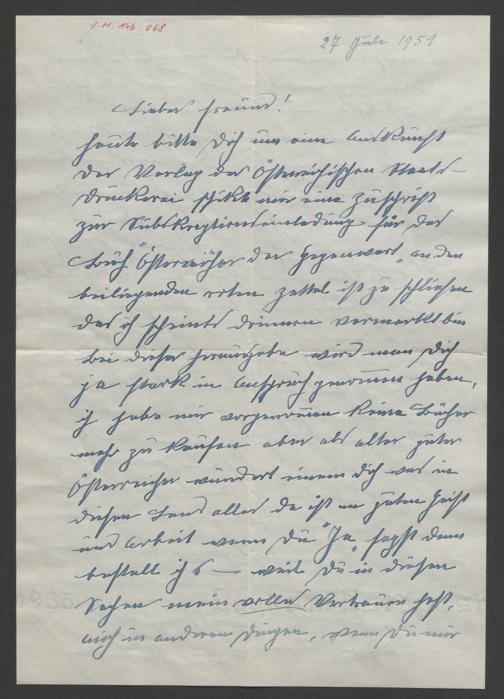 I.N. 146.068
27 Juli 1951
Lieber Freund!
heute bitte Dich um eine Auskunft
Der Verlag der Österreichischen Staats-
druckerei schikt mir eine Zuschrift
zur Subskreptionseinladung für das
Buch "Österreicher der Gegenwart" an den
beiliegenden roten Zettel ist zu schließen
das ich scheints drinnen vermerkt bin
bei dieser herausgabe wird man Dich
ja stark in Anspruch genommen haben,
ich habe mir vorgenommen keine Bücher
mehr zu kaufen aber als alter guter
Österreicher wundert einem dich was in
diesen Land alles da ist an guten Geist
und Arbeit wenn Du "Ja" sagst dann
bestell ich s — weil Du in diesen
Sachen mein volles Vertrauen hast,
auch in anderen Dingen, wenn Du mir